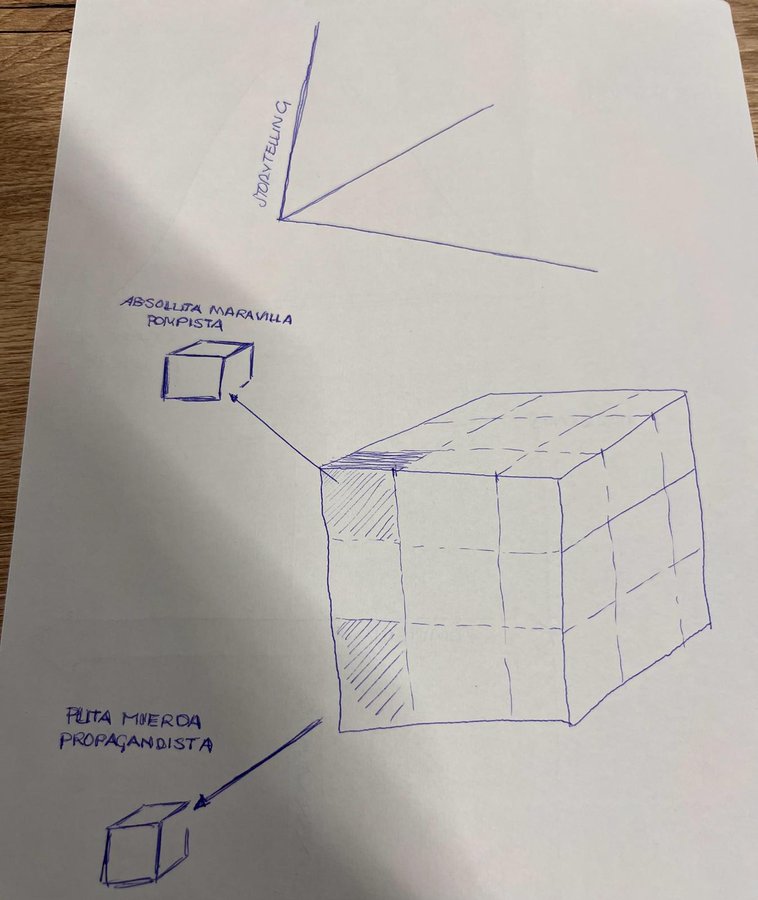 STORYTELLING
ABSOLUTA MARAVILLA
POMPISTA
PUTA MIERDA
PROPAGANDISTA